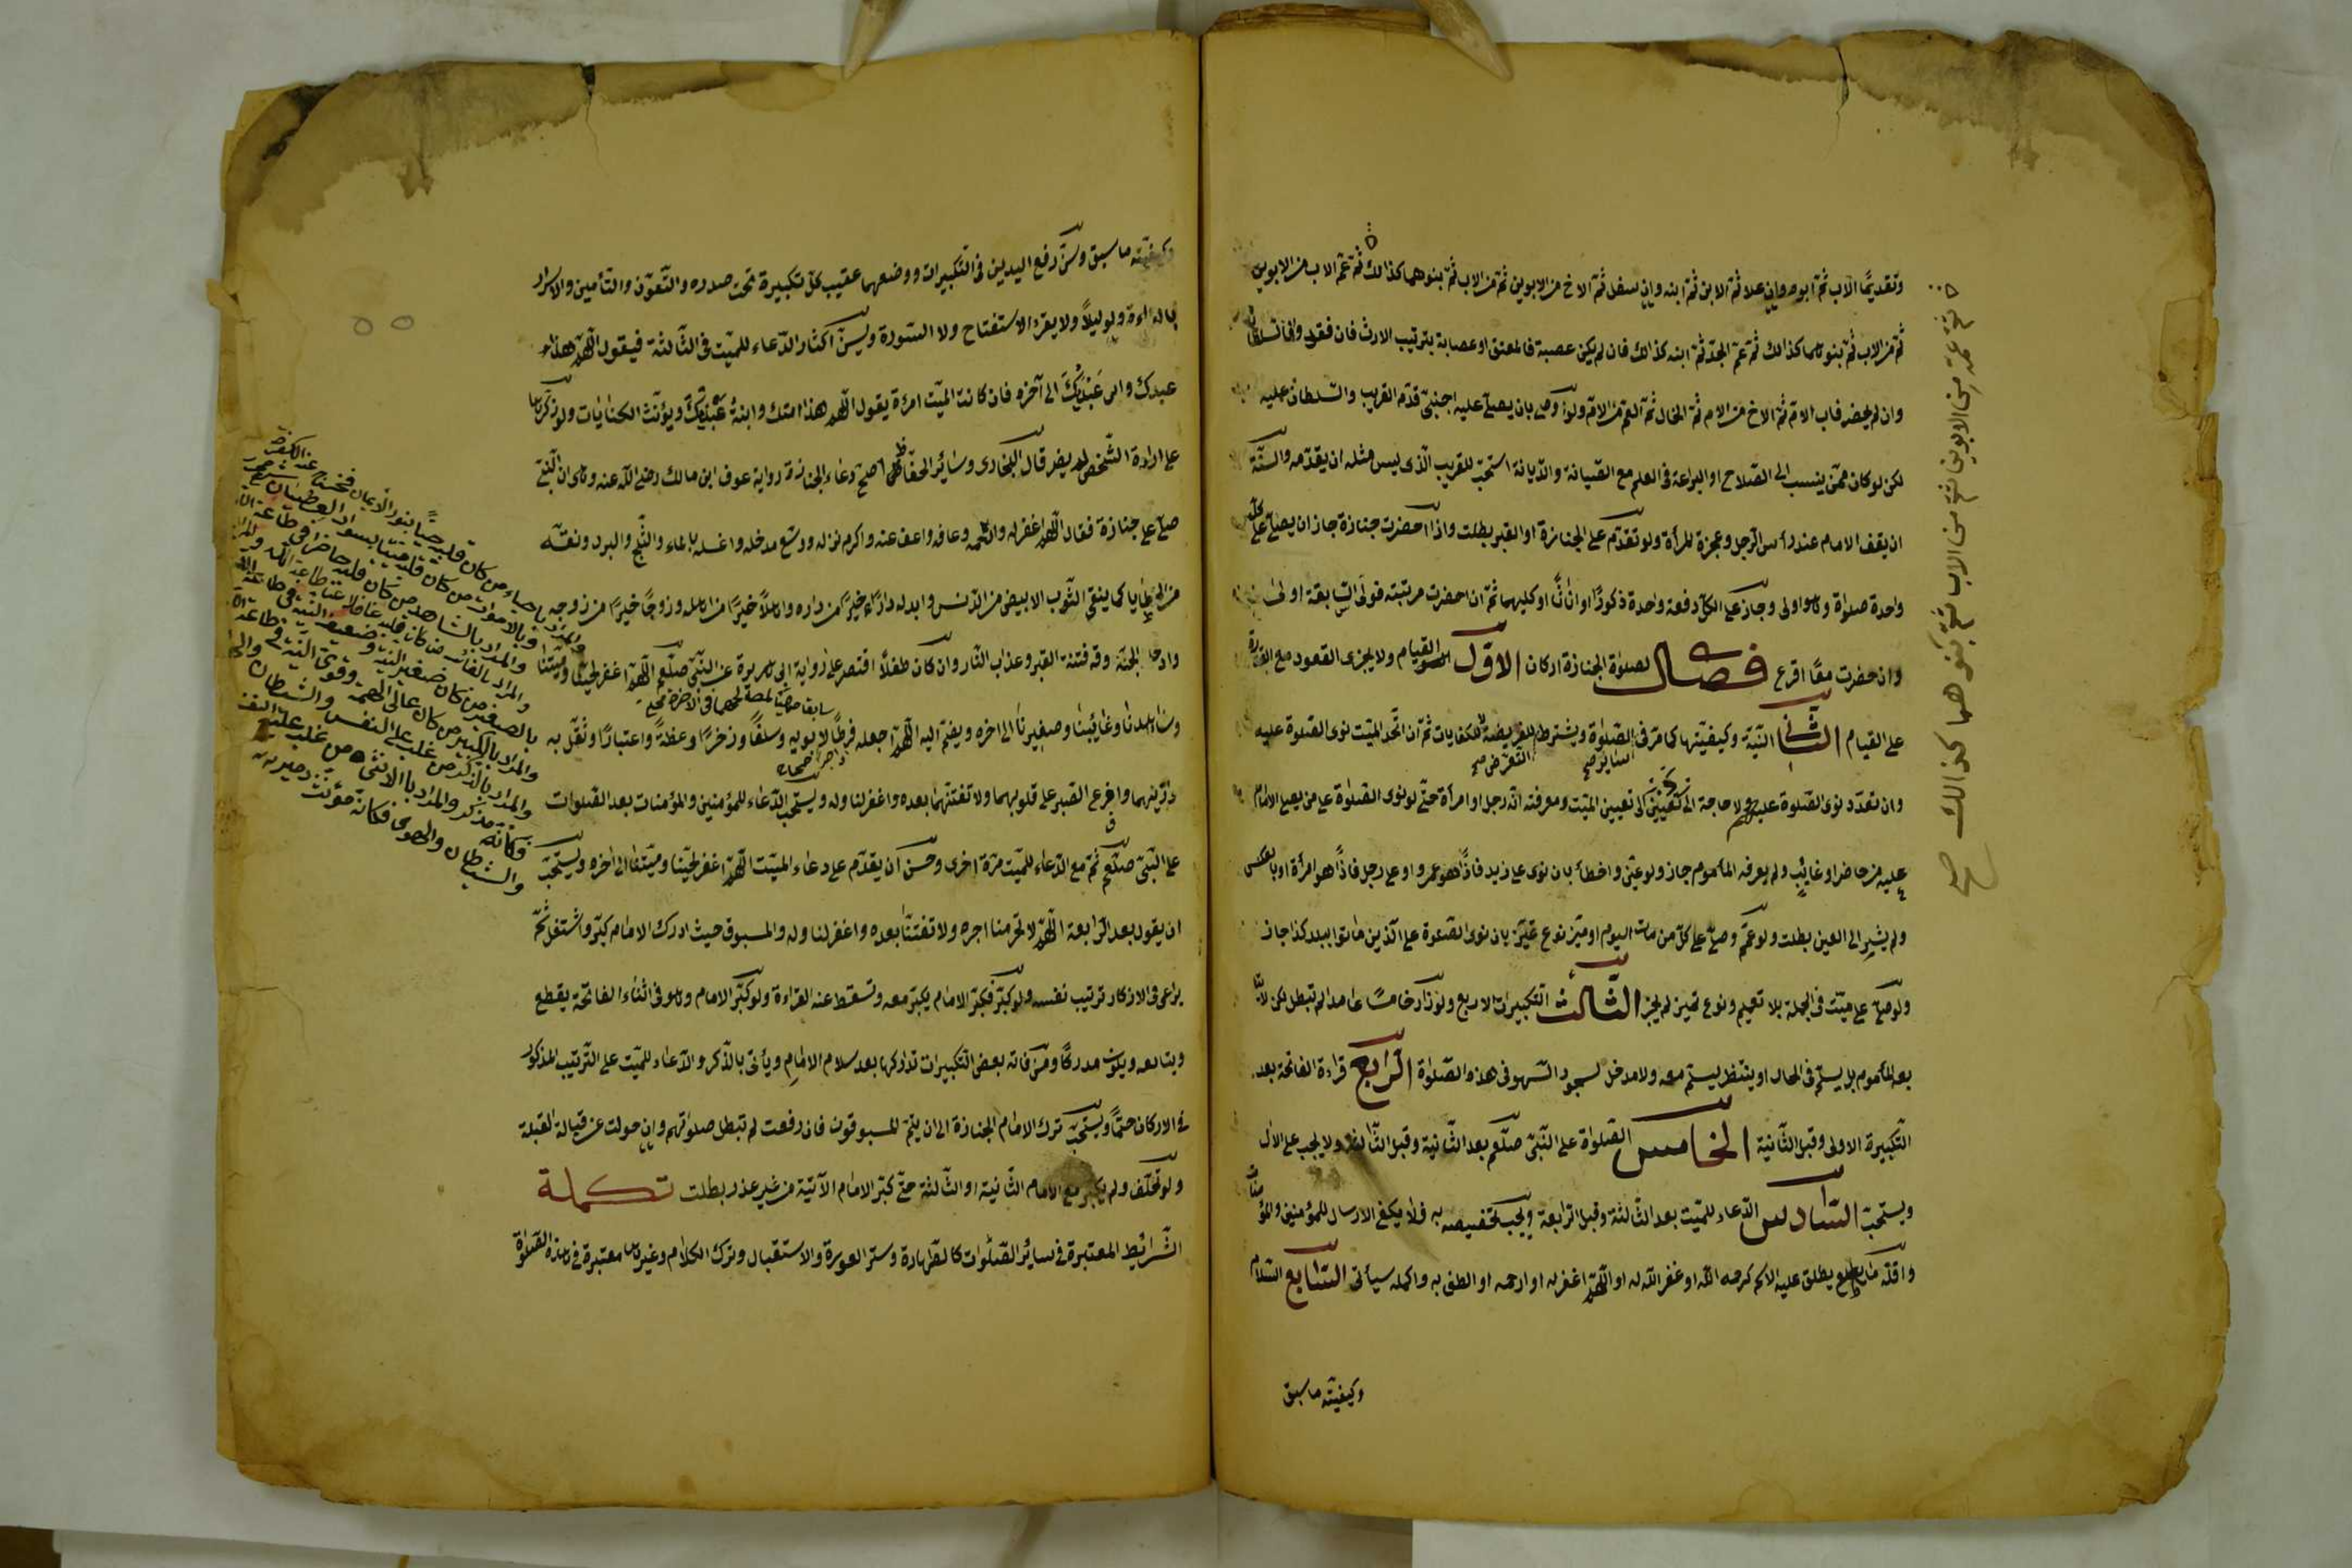 وتقديمًا الاب ثمّ ابوه وان علا ثمّ الابن ثمّ ابنه وان سفل ثمّ الاخ من الابوين ثمّ من الاب ثمّ بنوهما كذالك ثمّ عمّ الاب من الابوين
ثمّ من الاب ثمّ بنوهما كذالك ثمّ عمّ الجدّ ثمّ ابنه كذالك فان لم يكن عصبة فالمعتق او عصابة بترتيب الارث فان فقد
وان لم يحضر فاب الامّ ثمّ الاخ من الام ثمّ الخال ثمّ العم من الامّ ولو وصى بان يصلّى عليه اجنبىّ قدّم القريب والسلطان عليه
لكن لو كان ممّن ينسب الى الصّلاح او البراعة فى العلم مع الصّيانة والدّيانة استحبّ للقريب الّذى ليس مثله ان يقدّمه والسنّة
ان يقف الامام عند رأس الرّجل وعجزة المرأة ولو تقدّم على الجنازة او القبر بطلت واذا احضرت جنازة جاز ان يصلّى على كلّ
واحدة صلوٰة وهو اولى وجاز على الكلّ دفعة واحدة ذكورًا او اناثًا او كليهما ثمّ ان احضرت مرتبته فولى السابقة اولى
وان حضرت معًا اقرع فصل لصلوٰة الجنازة اركان الاوّل القيام ولا يجزى القعود مع القدرة
على القيام الثّانى النيّة وكيفيّتها كما مرّ فى سائر الصّلوٰة ويشترط التعرّض للفريضة لا للكفايات ثمّ ان اتّحد الميّت نوى الصّلوة عليه
وان تعدّد نوى الصّلوة عليهم ولا حاجة الى تعيين الميّت ومعرفته انّه رجل او امرأة حتّى لو نوى الصّلوٰة على من يصلى الامام
عليه من حاضر او غائب ولم يعرفه المأموم جاز ولو عيّن واخطأ بان نوى على زيد فاذًا هو عمرو او على رجل فاذًا هو امرأة او بالعكس
ولم يشير الى العين بطلت ولو عمّ وصلّى على كلّ من مات اليوم او ميّز نوع تميّز بان نوى الصّلوة على الّذين ماتوا ببلد كذا جاز
ولو صلّى على ميّت فى الجملة بلا تعميم ونوع تميز لم يجز الثّالث التّكبيرات الاربع ولو زاد خامسًا عامدا لم تبطل لكن لا يتا
بعه المأموم بل يسلّم فى الحال او ينتظر ليسلّم معه ولا مدخل لسجود السّهو فى هذه الصّلوٰة الرّابع قراءة الفاتحة بعد
التّكبيرة الاولى وقبل الثّانية الخامس الصّلوٰة على النّبىّ صلّعم بعد الثّانية وقبل الثّالثة ولا يجب على الاٰل
ويستحبّ السّادس الدّعاء للميّت بعد الثّالثة وقبل الرّابعة ويجب تخصيصه به فلا يكفى الارسال للمؤمنين والمؤمنات
واقلّه ما يطلق عليه الاسم كرحمه اللّه او غفر اللّه له او اللّهمّ اغفر له او ارحمه او الطف به واكمله سيأتى السّابع السّلام
وكيفيّته ما سبق
ثمّ عمّه من الابوين ثمّ من الاب ثمّ بنوهما كذالك صح
وكيفيّته ما سبق وسنّ رفع اليدين فى التّكبيرات ووضعهما عقيب كلّ تكبيرة تحت صدره والتّعوّذ والتّأمين والاسرار
بالقراءة ولو ليلًا ولا يقرء الاستفتاح ولا السّورة ويسنّ اكثار الدّعاء للميّت فى الثّالثة فيقول اللّهمّ هذا
عبدك وابن عَبْدَيْكَ الى آخره فان كانت الميّت امرءة يقول اللّهمّ هذا امتك وابنةُ عَبْدَيْكَ ويؤنّث الكنايات ولو ذكّرها
على ارادة الشّخص لم يضر قال البخارى وسائر الحفّاظ اصحّ دعاء الجنازة رواية عوف ابن مالك رضى اللّه عنه وهى ان النّبىّ
صلّى على جنازة فقال اللّهمّ اغفر له وارحمه وعافه واعف عنه واكرم نزله ووسّع مدخله واغسله بالماء والثّلج والبرد ونقّه
من الخطايا كما ينقى الثّوب الابيض من الدّنس وابدله دارًا خيرًا من داره واهلًا خيرًا من اهله وزوجًا خيرًا من زوجه
وادخله الجنّة وقه فتنة القبر وعذاب النّار وان كان طفلًا اقتصر على رواية ابى هريرة عن النّبىّ صلّعم اللّهمّ اغفر لحيّنا وميّتنا
وشاهدنا وغائبنا وصغيرنا الى اخره ويضمّ اليه اللّهمّ اجعله فرطًا لابويه وسلفًا وذخرًا وعظةً واعتبارًا وثقّل به
موازينهما وافرغ الصّبر على قلوبهما ولا تفتنهما بعده واغفر لنا وله ويستحبّ الدّعاء للمؤمنين والمؤمنات بعد الصّلوات
على النّبىّ صلّعم ثمّ مع الدّعاء للميّت مرّة اخرى وحسن ان يقدّم على دعاء الميّت اللّهمّ اغفر لحيّنا وميّتنا الى اخره ويستحبّ
ان يقول بعد الرّابعة اللّهمّ لا تحرمنا اجره ولا تفتنّا بعده واغفر لنا وله والمسبوق حيث ادرك الامام كبّر واشتغل ثمّ
يراعى فى الاذكار ترتيب نفسه ولو كبّر فكبّر الامام يكبّر معه وتسقط عنه القراءة ولو كبّر الامام وهو فى اثناء الفاتحة يقطع
ويتابعه ويكون مدركًا ومن فاته بعض التّكبيرات تداركها بعد سلام الامام ويأتى بالذّكر والدّعاء للميّت على التّرتيب المذكور
فى الاركان حتمًا ويستحبّ ترك الامام الجنازة الى ان يتمّ المسبوقون فان رفعت لم تبطل صلوٰتهم وان حولت عن قبالة القبلة
ولو تخلّف ولم يكبّر مع الامام الثّانية او الثّالثة حتّى كبّر الامام الآتية من غير عذر بطلت تكملة
الشّرائط المعتبرة فى سائر الصّلوات كالطّهارة وستر العورة والاستقبال وترك الكلام وغيرها معتبرة فى هذه الصّلوٰة
والمراد باحياء من كان قلبه حيًّا بنور الايمان
وبالاموات من كان قلبه ميّتا بسواد العصيان
والمراد بالشاهد من كان قلبه حاضرا فى طاعة اللّه
والمراد بالغائب من كان قلبه غافلا عن طاعة اللّه والمراد
بالصغير من كان صغير النيّة وضعيف النيّة فى طاعة اللّه
والمراد بالكبير من كان عالى الهمة وقوىّ النيّة فى طاعة
والمراد بالذكر من غلب على النفس والشيطان والهوى
فكانّه مذكر والمراد بالانثى من غلب عليه النفس
والشيطان والهوى فكانّه مؤنّث